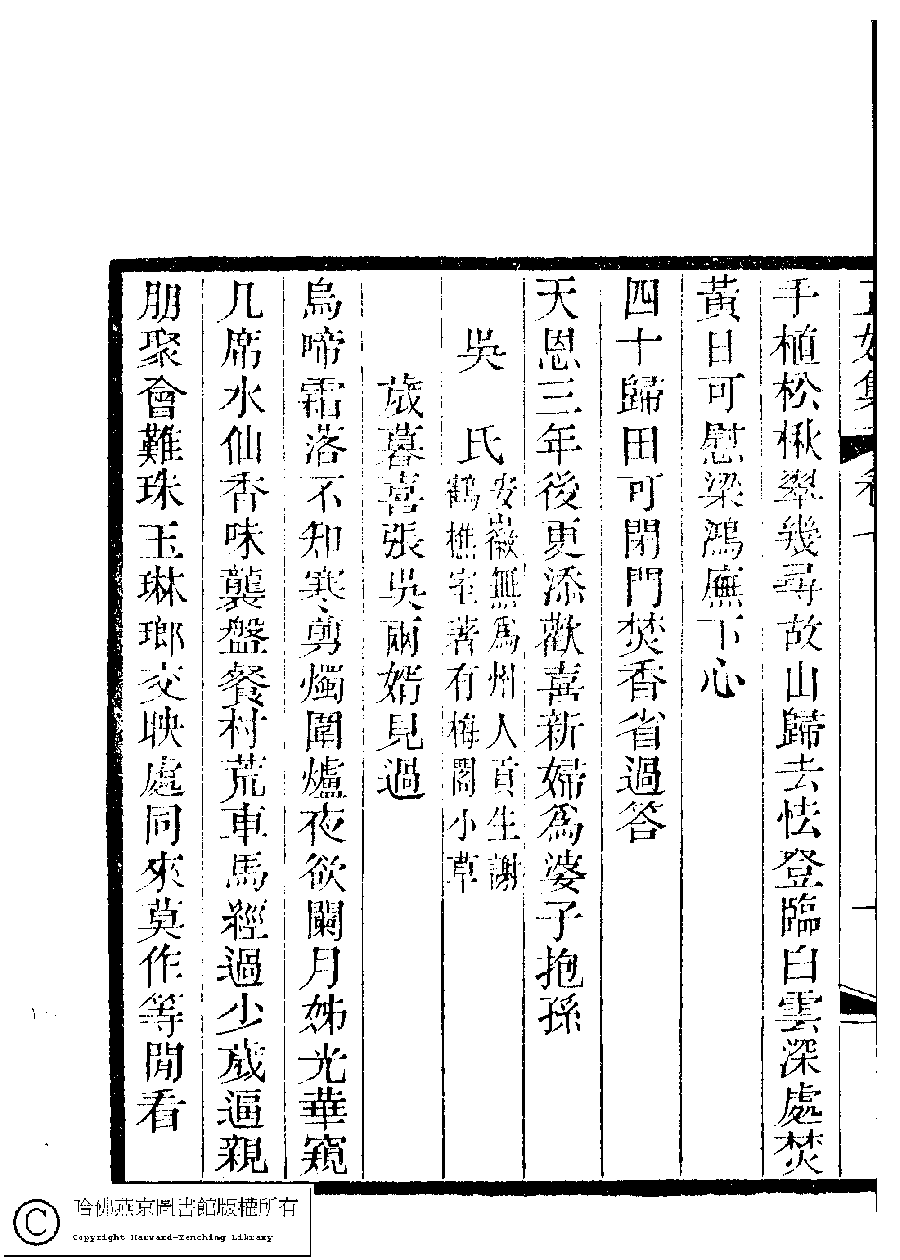 手植松楸翠幾尋故山歸去怯登臨白雲深處焚
黃日可慰梁鴻廡下心
四十歸田可閉門焚香省過答
天恩三年後更添歡喜新婦爲婆子抱孫
吳 氏 安徽無爲州人貢生謝
鶴樵室著有梅閣小草
歲暮喜張吳兩婿見過
烏啼霜落不知寒剪燭圍爐夜欲闌月姊光華窺
几席水仙香味襲盤餐村荒車馬經過少歲逼親
朋聚會難珠玉琳瑯交映處同來莫作等閒看
哈佛燕京圖書館版權所有
Copyright Harvard-Yenching Library